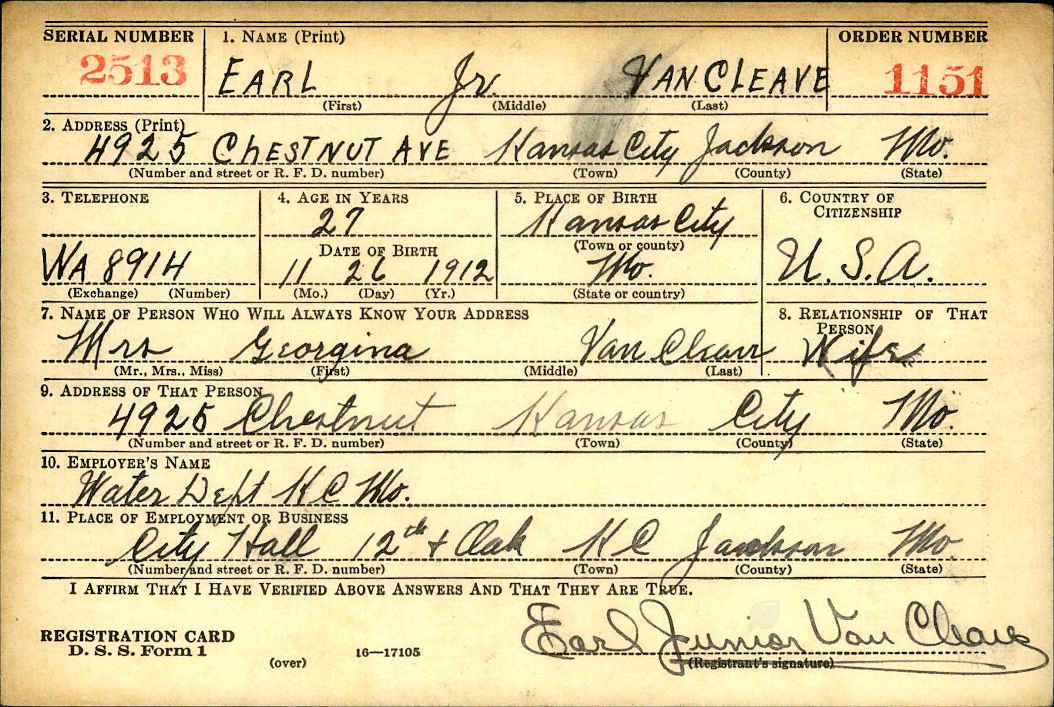 SERIAL NUMBER 1. NAME (Print) ORDER NUMBER
2513 EARL Jr. VAN CLEAVE 1151
(First) (Middle) (Last)
2. ADDRESS (Print)
4925 CHESTNUT AVE Kansas City Jackson Mo.
(Number and street or R. F. D. number) (Town) (County) (State)
3. TELEPHONE 4. AGE IN YEARS 5. PLACE OF BIRTH 6. COUNTRY OF CITIZENSHIP
27 Kansas City
DATE OF BIRTH (Town or county)
WA 8914 11 26 1912 Mo. U. S. A.
(Exchange) (Number) (Mo.) (Day) (Yr.) (State or country)
7. NAME OF PERSON WHO WILL ALWAYS KNOW YOUR ADDRESS 8. RELATIONSHIP OF THAT PERSON
Mrs Georgina Van Cleave Wife
(Mr., Mrs., Miss) (First) (Middle) (Last)
9. ADDRESS OF THAT PERSON
4925 Chestnut Kansas City Mo.
(Number and street or R. F. D. number) (Town) (County) (State)
10. EMPLOYER'S NAME
Water Dept K C Mo.
11. PLACE OF EMPLOYMENT OR BUSINESS
City Hall 12th + Oak K C Jackson Mo.
(Number and street or R. F. D. number) (Town) (County) (State)
I AFFIRM THAT I HAVE VERIFIED ABOVE ANSWERS AND THAT THEY ARE TRUE.
REGISTRATION CARD Earl Junior Van Cleave
D. S. S. Form 1 (over) 16—17105 (Registrant's signature)